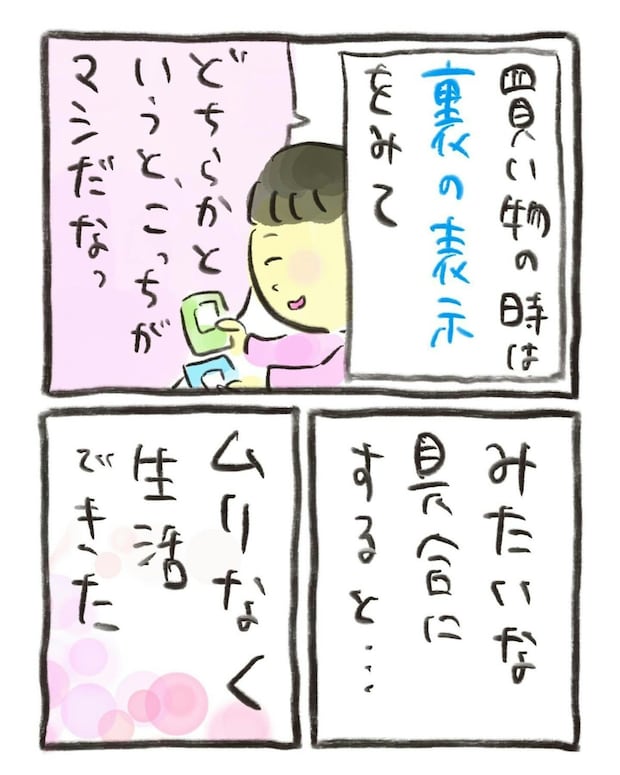 買い物の時は
裏の表示
をみて
どちらかと
いうと、こっちが
マシだなっ
みたいな
具合に
すると…
ムリなく
生活
できた